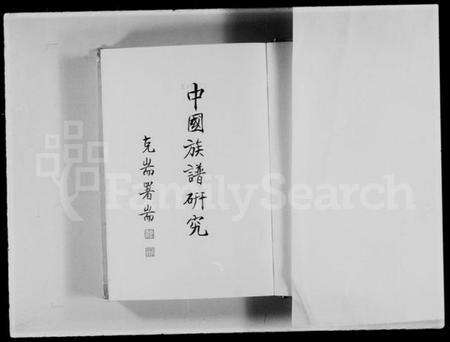 中國族譜研究
克耑署耑
FamilySearch